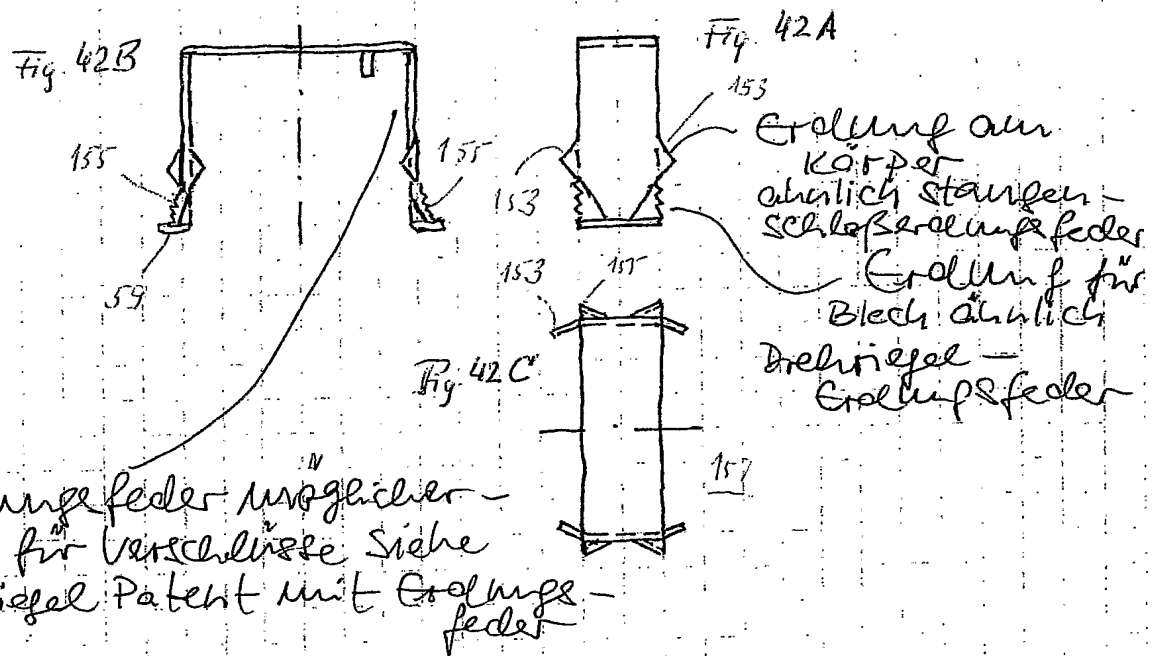 Fig. 42B
Fig. 42A
153
155
155
153
59
Erdung am
Körper
ähnlich Stangen-
schloßerdungsfeder
Erdung für
Blech ähnlich
Drehriegel-
Erdungsfeder
153
155
Fig. 42C
157
ungsfeder möglicher-
für Verschlüsse siehe
iegel Patent mit Erdungs-
feder